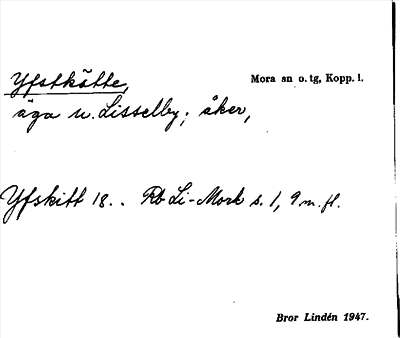 Yfstkätte,
Mora sn o. tg, Kopp. l.
äga u. Lisselby; åker,
Yfskitt 18.. Rb Li-Mork s. 1, 9 m. fl.
Bror Lindén 1947.